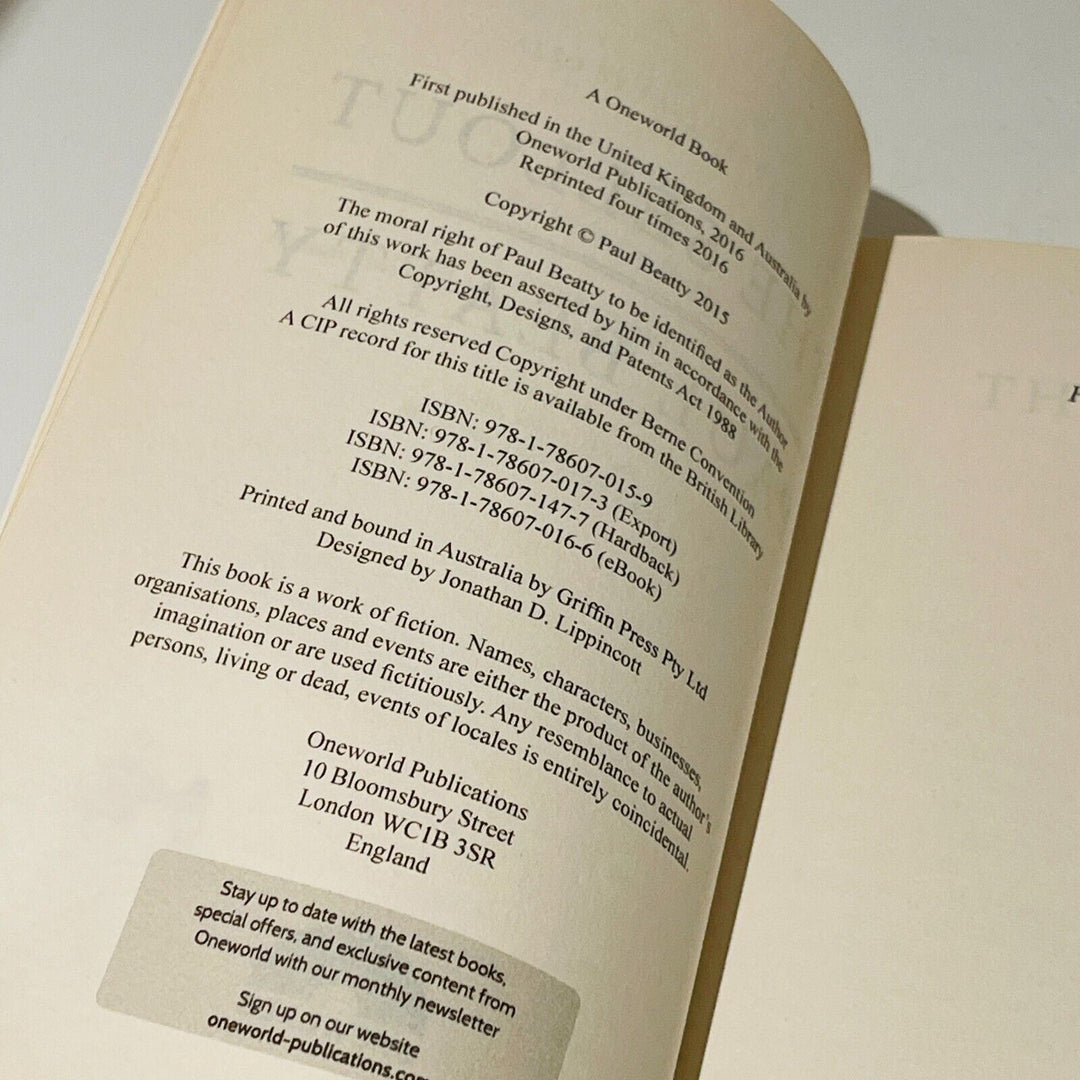 A Oneworld Book
First published in the United Kingdom and Australia by
Oneworld Publications, 2016
Reprinted four times 2016
Copyright © Paul Beatty 2015
The moral right of Paul Beatty to be identified as the Author
of this work has been asserted by him in accordance with the
Copyright, Designs, and Patents Act 1988
All rights reserved Copyright under Berne Convention
A CIP record for this title is available from the British Library
ISBN: 978-1-78607-015-9
ISBN: 978-1-78607-017-3 (Export)
ISBN: 978-1-78607-147-7 (Hardback)
ISBN: 978-1-78607-016-6 (eBook)
Printed and bound in Australia by Griffin Press Pty Ltd
Designed by Jonathan D. Lippincott
This book is a work of fiction. Names, characters, businesses,
organisations, places and events are either the product of the author's
imagination or are used fictitiously. Any resemblance to actual
persons, living or dead, events of locales is entirely coincidental.
Oneworld Publications
10 Bloomsbury Street
London WC1B 3SR
England
Stay up to date with the latest books,
special offers, and exclusive content from
Oneworld with our monthly newsletter
Sign up on our website
oneworld-publications.com